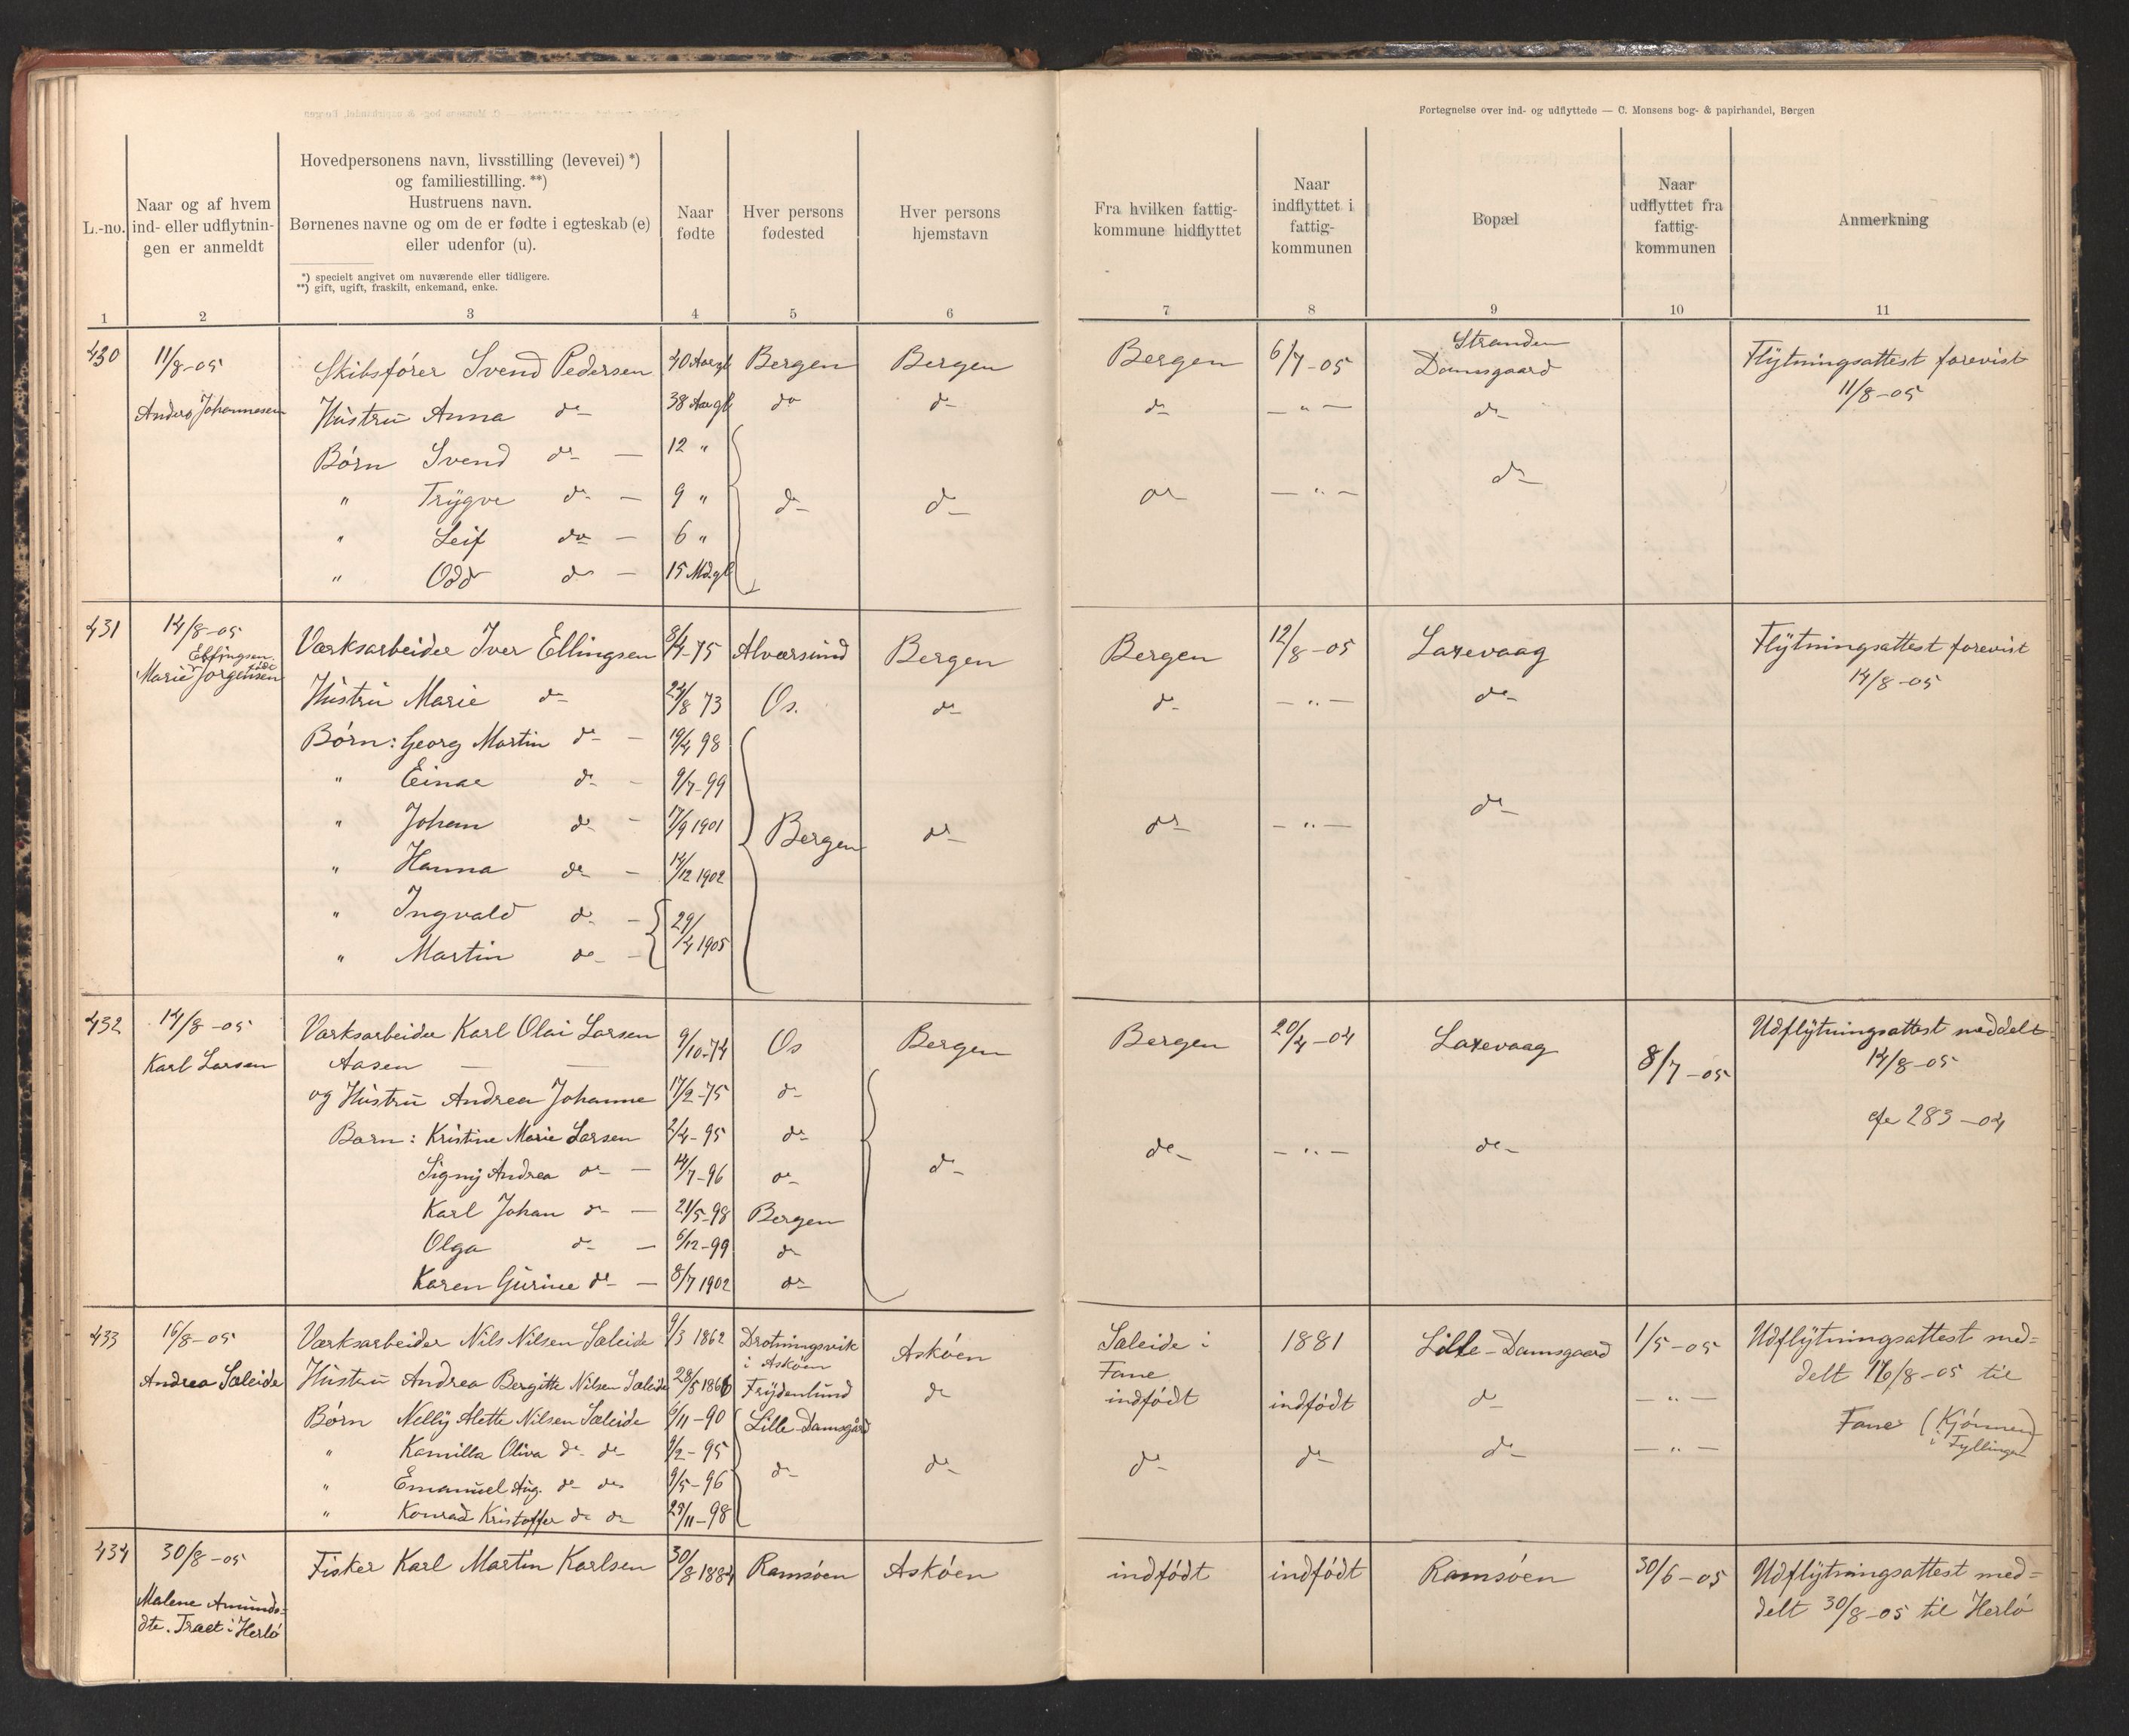 Fortegnelse over ind- og udflyttede — C. Monsens bog- & papirhandel, Bergen
L.-no.
Naar og af hvem
ind- eller udflytnin-
gen er anmeldt
Hovedpersonens navn, livsstilling (levevei) *)
og familiestilling. **)
Hustruens navn.
Børnenes navne og om de er fødte i egteskab (e)
eller udenfor (u).
*) specielt angivet om nuværende eller tidligere.
**) gift, ugift, fraskilt, enkemand, enke.
Naar
fødte
Hver persons
fødested
Hver persons
hjemstavn
Fra hvilken fattig-
kommune hidflyttet
Naar
indflyttet i
fattig-
kommunen
Bopæl
Naar
udflyttet fra
fattig-
kommunen
Anmerkning
1 2 3 4 5 6 7 8 9 10 11
430 11/8-05 Skibsfører Svend Pedersen 40 Aargl Bergen Bergen Bergen 6/7-05 Stranden Damsgaard Flytningsattest forevist
Anders Johannesen Hustru Anna do 38 Aargl do do do — " — do 11/8-05
Børn Svend do — 12 "
" Trygve do — 9 " do do do — " — do
" Leif do — 6 "
" Odd do — 15 Md.gl
431 14/8-05 Værksarbeider Iver Ellingsen 8/4-75 Alværsund Bergen Bergen 12/8-05 Laxevaag Flytningsattest forevist
Marie Ellingsen født Jørgensen Hustru Marie do 24/8 73 Os. do do — " — do 14/8-05
Børn: Georg Martin do — 19/4 98
" Einar do — 9/7-99
" Johan do — 17/9 1901 Bergen do do — " — do
" Hanna do — 14/12 1902
" Ingvald do — 29/4 1905
" Martin do —
432 14/8-05 Værksarbeider Karl Olai Larsen 9/10-74 Os Bergen Bergen 20/4-04 Laxevaag 8/7-05 Udflytningsattest meddelt
Karl Larsen Aasen — — 14/8-05
og Hustru Andrea Johanne 17/2-75 do
Børn: Kristine Marie Larsen 2/4-95 do do do — " — do 283-04
Signy Andrea do — 14/7-96 do
Karl Johan do — 21/5-98 Bergen
Olga do — 6/12-99 do
Karen Gurine do — 8/7 1902 do
433 16/8-05 Værksarbeider Nils Nilsen Sæleide 9/3 1862 Drotningsvik i Askøen Askøen Sæleide i Fane 1881 Lille-Damsgaard 1/5-05 Udflytningsattest med-
Andrea Sæleide Hustru Andrea Bergitte Nilsen Sæleide 28/5 1866 Frydenlund do indfødt indfødt do — " — delt 16/8-05 til
Børn Nelly Alette Nilsen Sæleide 6/11-90 Lille Damsgård Fane (Kjønnen
" Kamilla Oliva do do 9/2-95 do do do do do — " — i Fyllingen)
" Emanuel Aug. do do 9/5-96
" Konrad Kristoffer do do 29/11-98
434 30/8-05 Fisker Karl Martin Karlsen 30/8 1884 Ramsøen Askøen indfødt indfødt Ramsøen 30/6-05 Udflytningsattest med-
Malene Amunds- delt 30/8-05 til Herlø
dtr. Træt i Herlø